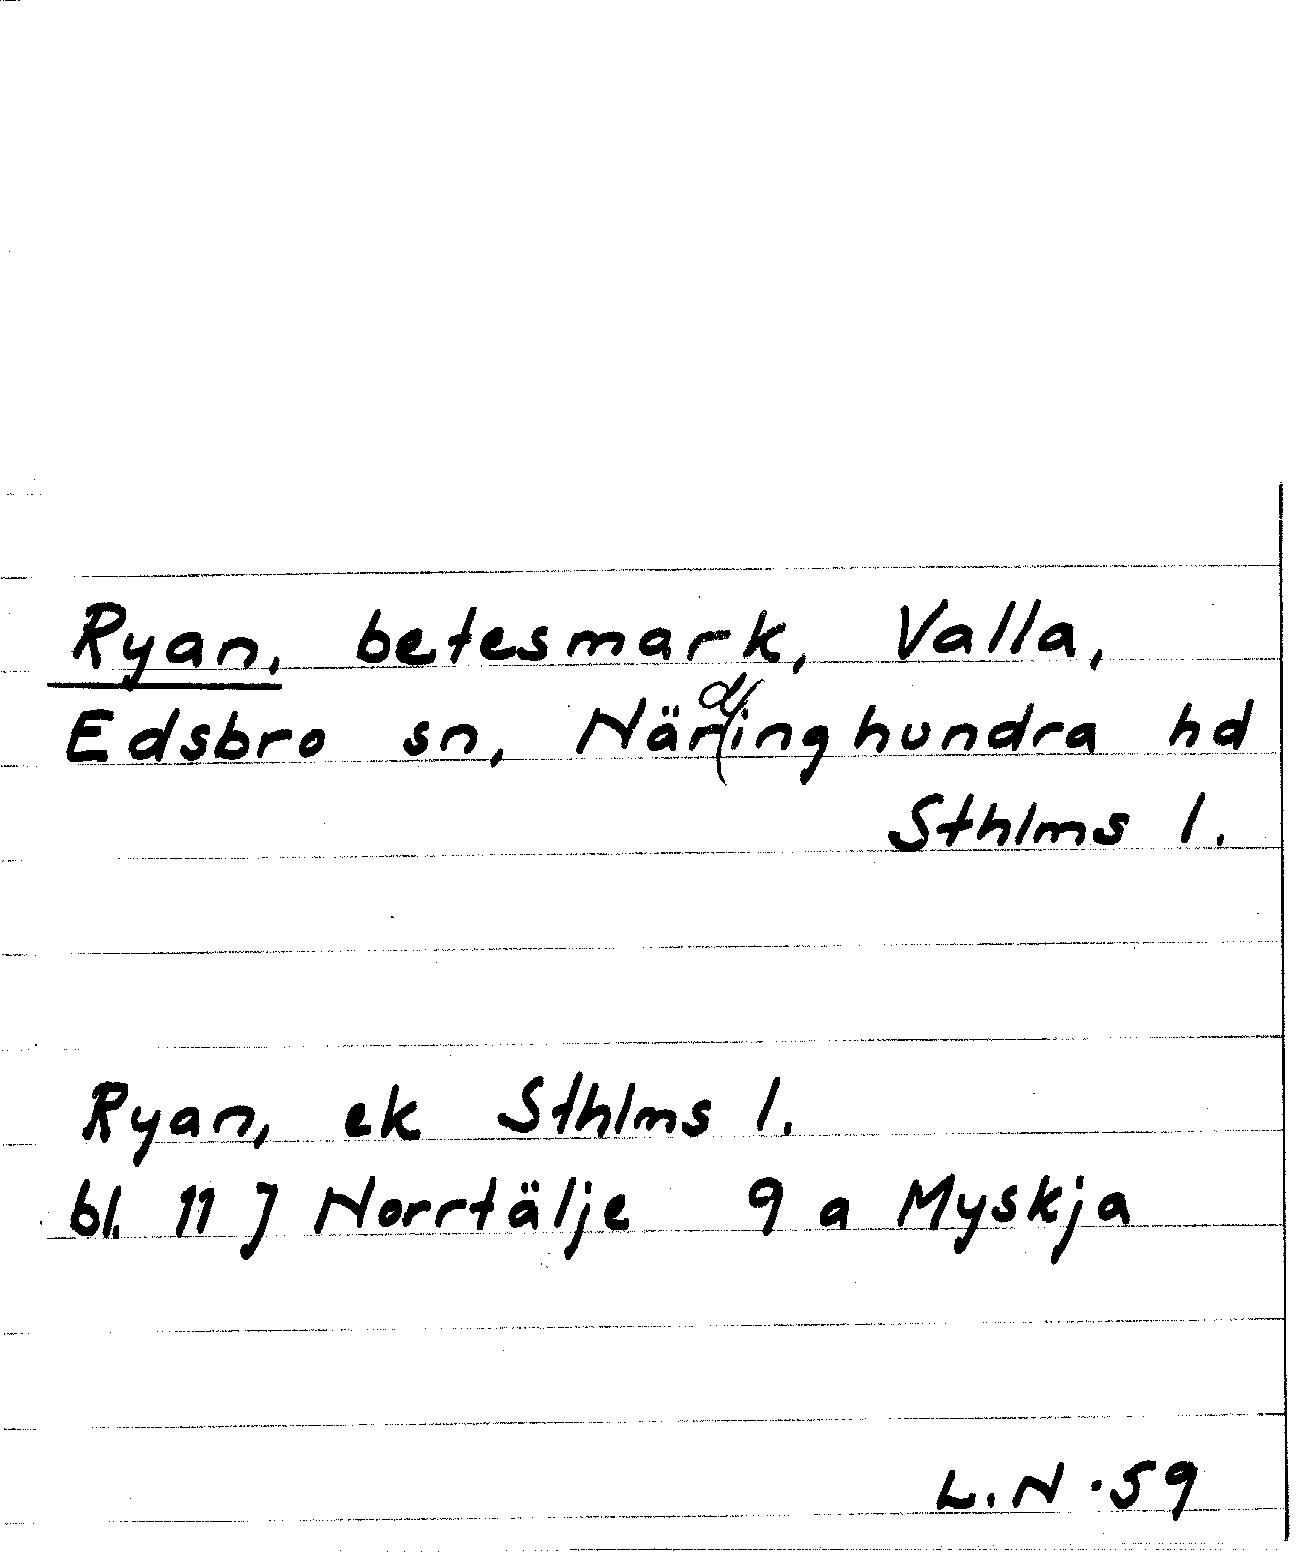 Ryan, betesmark, Valla,
Edsbro sn, Närdinghundra hd
Sthlms l.
Ryan, ek Sthlms l.
bl. 11 J Norrtälje 9 a Myskja
L.N. 59